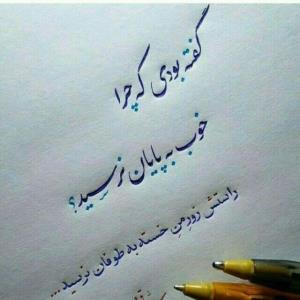 گفته بودی که چرا
خوب به پایان نرسید؟
راستش زورِ منِ خسته به طوفان نرسید...